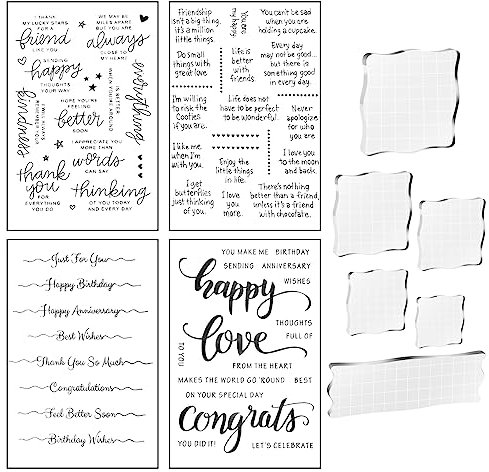 I THANK
MY LUCKY STARS
FOR A
friend
LIKE YOU
WE MAY BE
MILES APART
BUT YOU ARE
always
CLOSE TO
MY HEART
SENDING
happy
THOUGHTS
YOUR WAY
everything
IS BETTER
WHEN YOU'RE AROUND
HOPE YOU'RE
FEELING
better
SOON
kindness
I WILL ALWAYS
REMEMBER YOUR
I APPRECIATE YOU
MORE THAN
words
CAN SAY
thank
you
FOR
EVERYTHING
YOU DO
thinking
OF YOU TODAY
AND EVERY DAY
Friendship
isn't a big thing,
it's a million
little things.
You are
my happy
You can't be sad
when you are
holding a cupcake.
Do small
things with
great love
Life is
better
with
friends
Every day
may not be good...
but there is
something good
in every day.
I'm willing
to risk the
Cooties
if you are.
Life does not
have to be perfect
to be wonderful.
Never
apologize
for who
you are.
I like me
when I'm
with you.
Enjoy the
little things
in life.
I love you
to the moon
and back.
I get
butterflies
just thinking
of you.
I love
you
more.
There's nothing
better than a friend,
unless it's a friend
with chocolate.
Just For You
Happy Birthday
Happy Anniversary
Best Wishes
Thank You So Much
Congratulations
Feel Better Soon
Birthday Wishes
YOU MAKE ME BIRTHDAY
SENDING ANNIVERSARY
happy WISHES
THOUGHTS
love FULL OF
TO YOU
FROM THE HEART
MAKES THE WORLD GO 'ROUND BEST
ON YOUR SPECIAL DAY
congrats
YOU DID IT! LET'S CELEBRATE